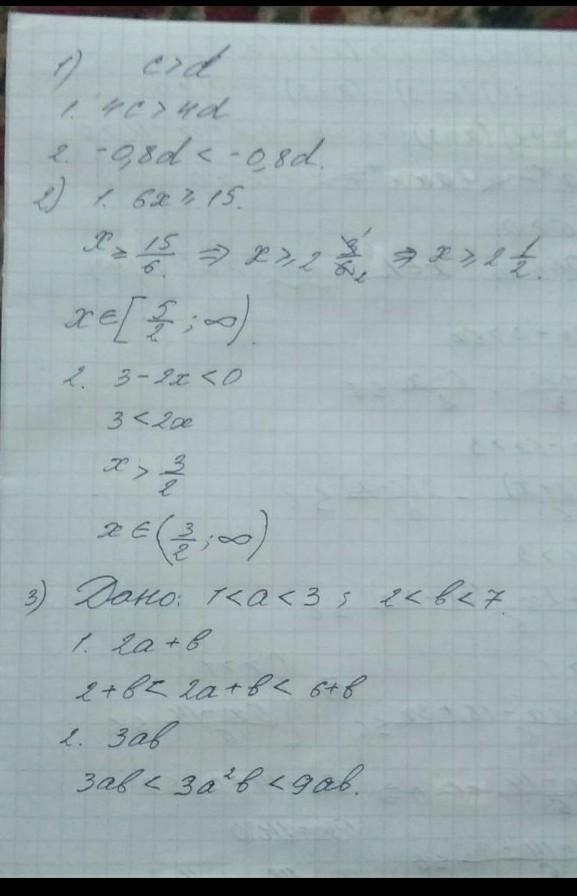 1) c > d
1. 4c > 4d
2. -0,8d < -0,8d.
2) 1. 6x ≥ 15.
x ≥ 15/6. ⇒ x ≥ 2 3/6 1 2 ⇒ x ≥ 2 1/2.
x ∈ [5/2; ∞).
2. 3 - 2x < 0
3 < 2x
x > 3/2
x ∈ (3/2; ∞)
3) Дано: 1 < a < 3; 2 < b < 7.
1. 2a + b
2 + b < 2a + b < 6 + b
2. 3ab
3ab < 3a²b < 9ab.